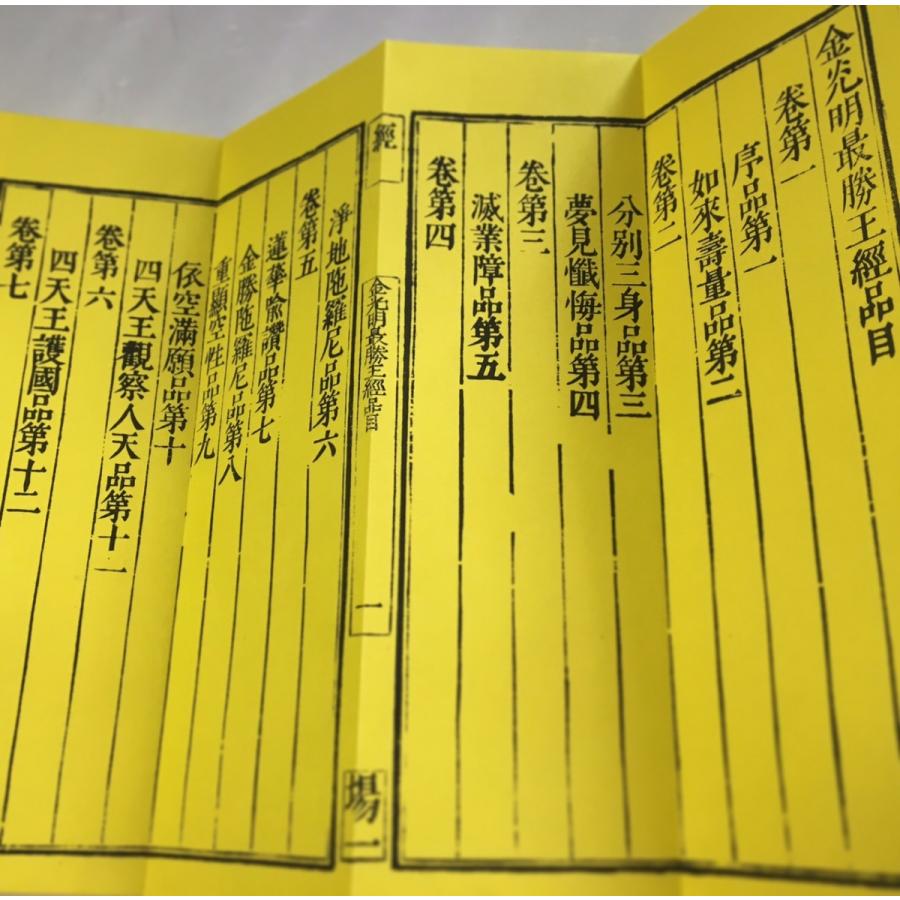 金光明最勝王經品目
卷第一
序品第一
如來壽量品第二
卷第二
分別三身品第三
夢見懺悔品第四
卷第三
滅業障品第五
卷第四
經
金光明最勝王經品目
一
場一
淨地陁羅尼品第六
卷第五
蓮華喻讚品第七
金勝陁羅尼品第八
重顯空性品第九
依空滿願品第十
四天王觀察人天品第十一
卷第六
四天王護國品第十二
卷第七